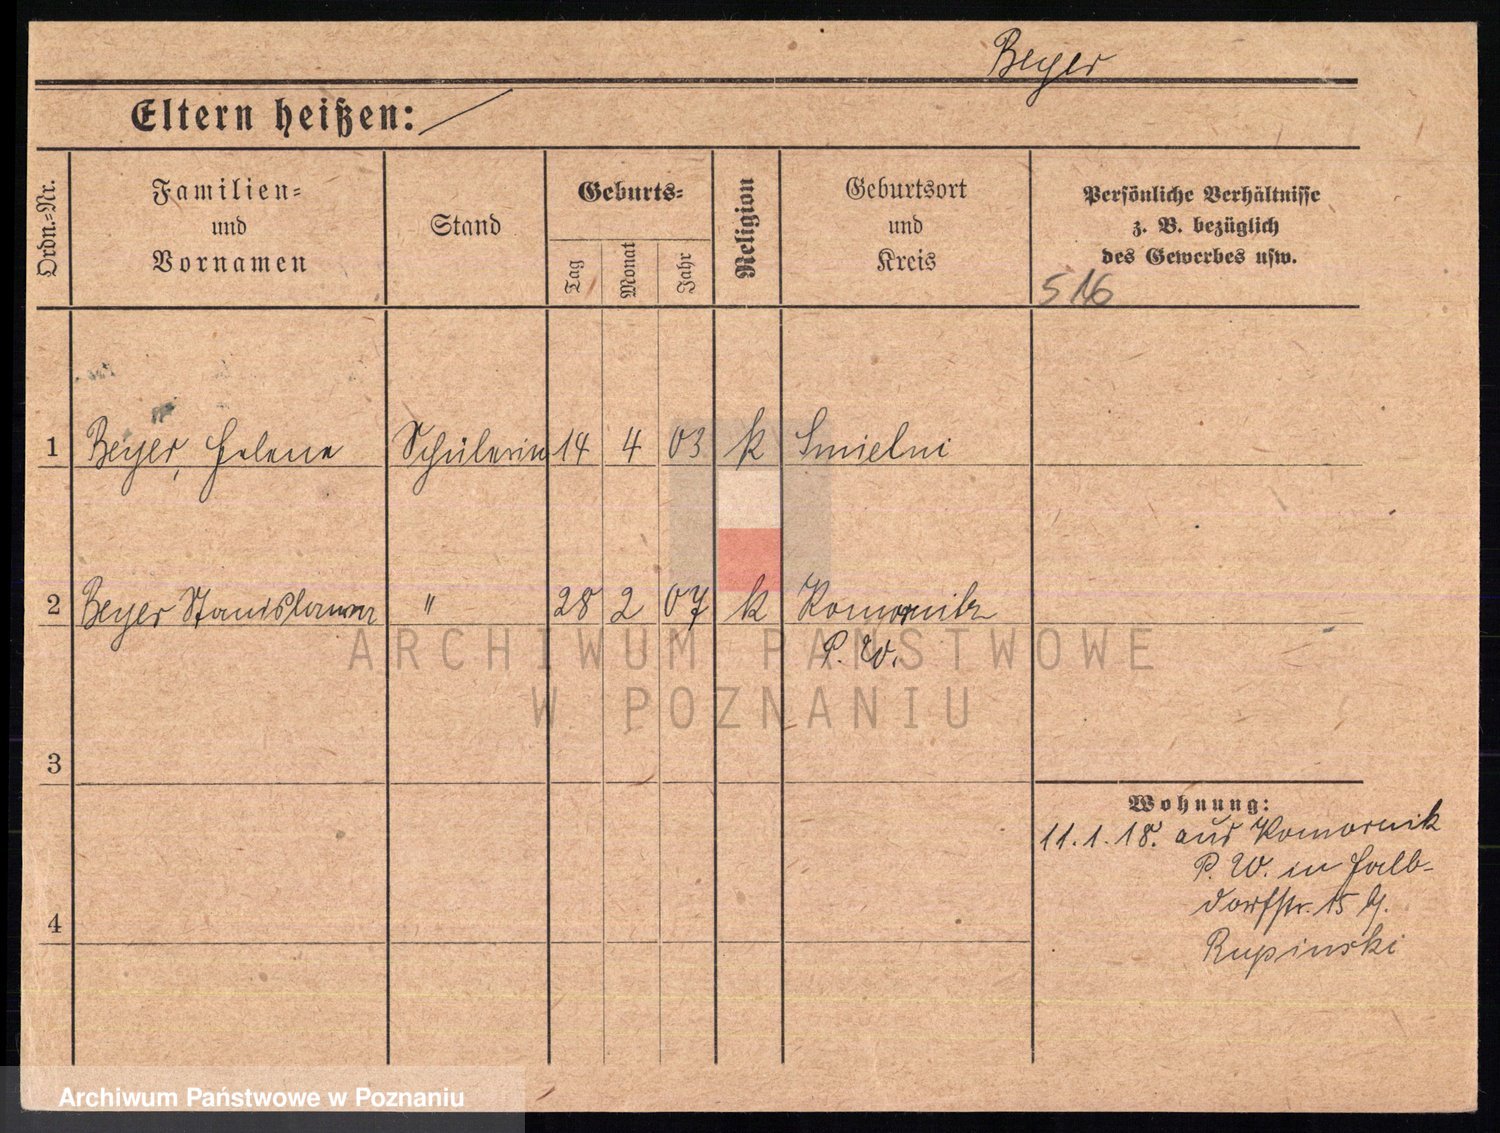 Beyer
Eltern heißen:
Ordn.=Nr.
Familien=
und
Vornamen
Stand
Geburts=
Tag
Monat
Jahr
Religion
Geburtsort
und
Kreis
Persönliche Verhältnisse
z. B. bezüglich
des Gewerbes usw.
516
1 Beyer, Helene Schülerin 14 4 03 k Smielni
2 Beyer Stanislawa " 28 2 07 k Komornik
P. W.
ARCHIWUM PAŃSTWOWE
W POZNANIU
3
Wohnung:
11.1.18. aus Komornik
P. W. in Halb-
dorfstr. 15 b/.
Rupinski
4
Archiwum Państwowe w Poznaniu